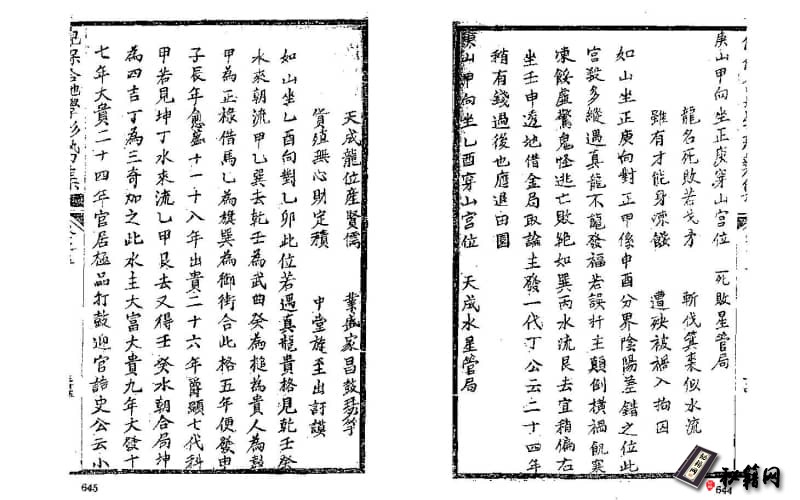 庚山甲向坐正庚穿山宮位　死敗星管局
龍名死敗若戈矛　斬伐箕裘似水流
雖有才能身凍餒　遭殃被禍入拘囚
如山坐正庚向對正甲係申酉分界陰陽差錯之位此
宮殺多縱遇真龍不能發福若誤扦主顛倒橫禍飢寒
凍餒虛驚鬼怪逃亡敗絶如巽丙水流艮去宜稍偏右
坐壬申透地借金局取論主發一代丁公云二十四年
稍有錢過後也應退田園
庚山甲向坐乙酉穿山宮位　天成水星管局
天成龍位產賢儒　業盛家昌鼓琴
貨殖無心財定積　中堂旌至出訂謨
如山坐乙酉向對乙卯此位若遇真龍貴格見乾壬癸
水來朝流甲乙巽去乾壬為武曲癸為槌為貴人為鼓
甲為正祿借馬乙為旗巽為御街合此格五年便發申
子辰年愈盛十一十八年出貴二十六年爵顯七代科
甲若見坤丁水來流乙甲艮去又得壬癸水朝合局坤
為四吉丁為三奇加之此水主大富大貴九年大發十
七年大貴二十四年官居極品打鼓迎官誥史公云小
645
644
秘籍网